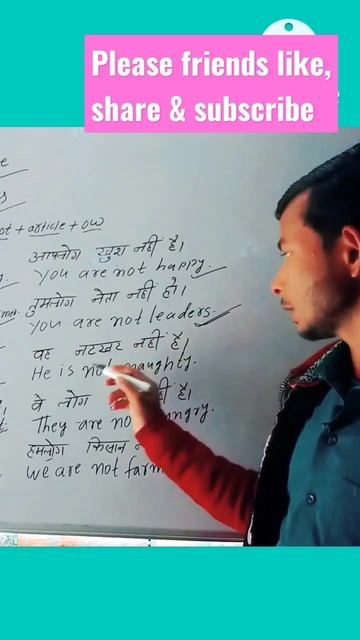 Please friends like,
share & subscribe
+ article + ow
आपलोग खुश नहीं हैं।
You are not happy.
तुमलोग नेता नहीं हो।
You are not leaders.
वह नटखट नहीं है।
He is not naughty.
वे लोग है।
They are
हमलोग किसान
We are not